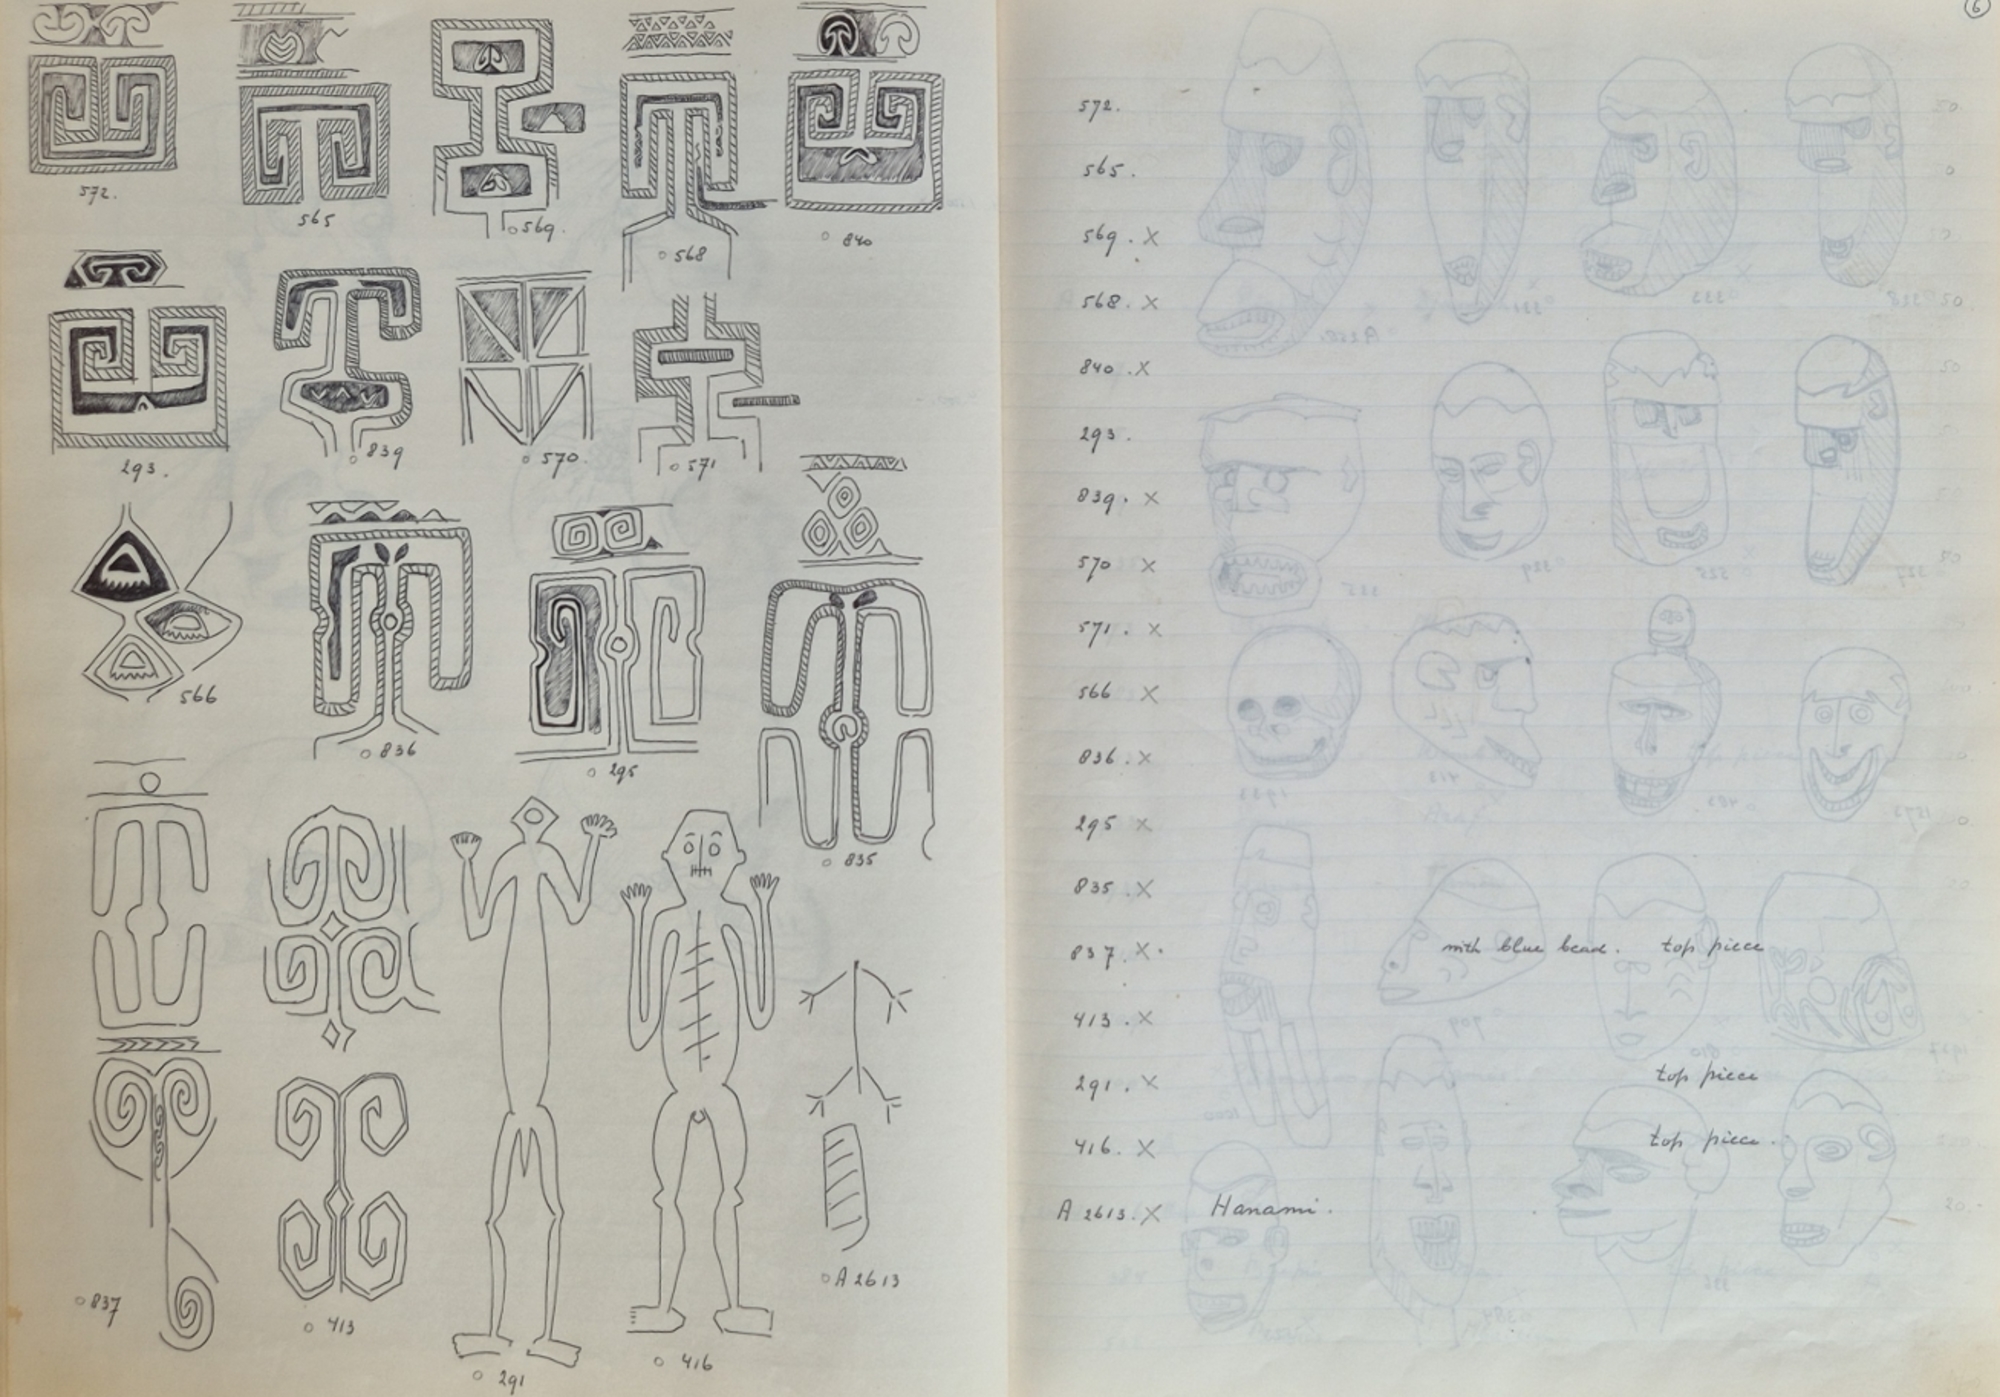 572.
565
569.
568
840
293.
839
570.
571
566
836
295
835
837
413
291
416
A 2613
6
572.
565.
569. X
568. X
840. X
293.
839. X
570 X
571. X
566 X
836. X
295 X
835. X
837. X. with blue bead. top piece
413. X
291. X top piece
416. X top piece.
A 2613. X Hanami.